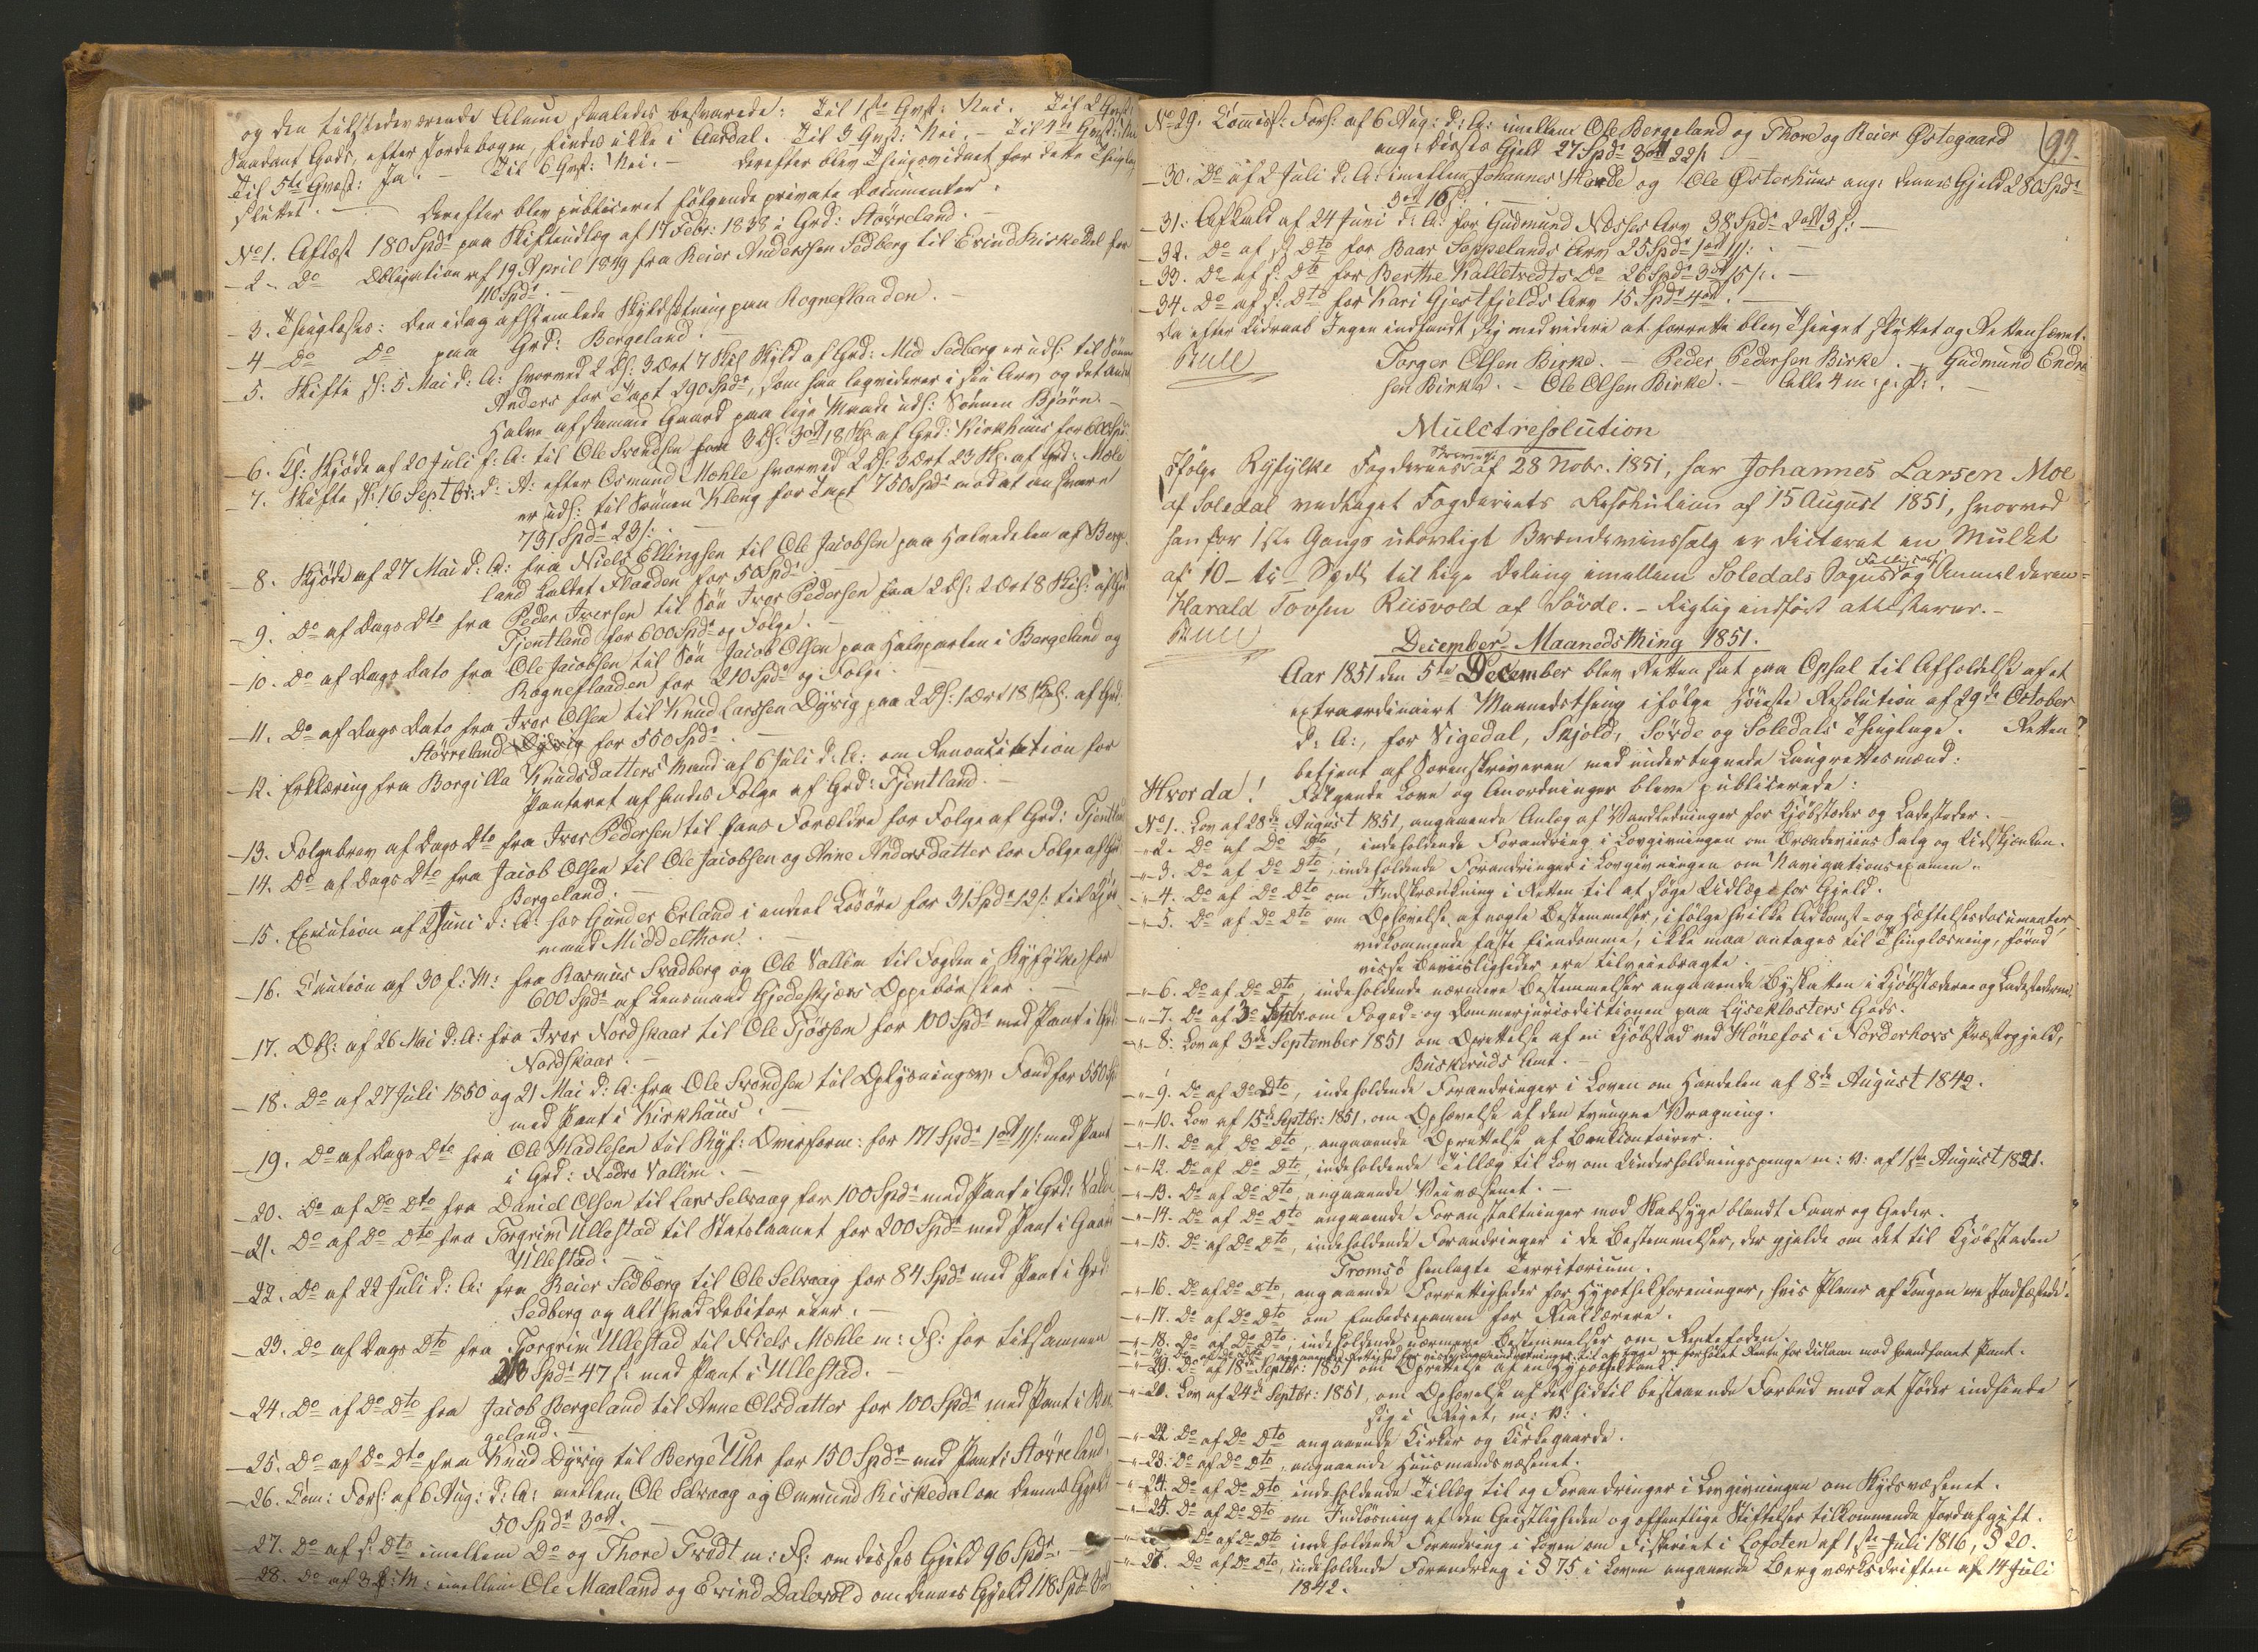 og den tilstedeværende Almue saaledes besvarede: Til 1ste Qvst: Nei. Til 2 Qvst:
Saadant Gods, efter Jordebogen, findes ikke i Aardal. Til 3 Qvst: Nei. – Til 4de Qvst: Nei
Til 5te Qvest: Ja. – Til 6 Qvst: Nei. – Derefter blev Thingsvidnet for dette Thinglag
sluttet. – Derefter blev publiceret følgende private Documenter.
No 1. Aflæst 180 Spdr paa Skifteudlæg af 17 Febr: 1838 i Grd: Størreland. –
– 2 – Do Obligation af 19 April 1849 fra Reier Anderssen Sedberg til Evind Kirkedal for
110 Spdr. –
– 3. Thinglæses: Den idag afhjemlede Skyldsætning paa Rogneflaaden. –
4 – Do Do paa Grd: Bergeland.
– 5. Skifte sl: 5 Mai d: A: hvorved 2 Dl: 3 Ort 7 Skil Skyld af Grd: Med Sedberg er udl: til Sønnen
Anders for Taxt 290 Spdr, som han liqviderer i sin Arv og det andet
Halve af samme Gaard paa lige Maade udl: Sønnen Bjørn. –
– 6. Kl: Skjøde af 20 Juli f: A: til Ole Svendsen paa 3 Dl: 3 Ort 18 Sk af Grd: Kirkhuus for 600 Spd.
– 7. Skifte sl: 16 Septbr: d: A: efter Osmund Mehle hvorved 2 Dl: 3 Ort 23 Sk: af Grd: Mæle
er udl: til Sønnen Kleng for Taxt 750 Spdr mod at ansvare
731 Spdr 23 s: –
– 8. Skjøde af 27 Mai d: A: fra Niels Ellingsen til Ole Jacobsen paa Halvedelen af Berge-
land kaldet Flaaden for 50 Spdr. –
– 9. Do af Dags Dto fra Peder Iversen til Søn Iver Pedersen paa 2 Dl: 2 Ort 8 Skil: af Grd
Tjentland for 600 Spdr og Folge. –
– 10. Do af Dags Dato fra Ole Jacobsen til Søn Jacob Olsen paa Halvparten i Bergeland og
Rogneflaaden for 210 Spdr og Folge. –
– 11. Do af Dags Dato fra Iver Olsen til Knud Larssen Dyrvig paa 2 Dl: 1 Ort 18 Skil: af Grd:
Størreland for 550 Spdr. –
– 12. Erklæring fra Borgilla Knudsdatters Mand af 6 Juli d: A: om Renontiation for
Panteret af hendes Folge af Grd: Tjentland. –
– 13. Folgebrev af Dags Dto fra Iver Pedersen til hans Forældre for Folge af Grd: Tjentland
– 14. Do af Dags Dto fra Jacob Olsen til Ole Jacobsen og Anne Andersdatter for Folge af Grd:
Bergeland. –
– 15. Execution af 2 Juni d: A: hos Gunder Erland i endeel Løsøre for 31 Spdr 12 s: til Kjøb-
mand Middelthon. –
– 16. Caution af 30 f: M: fra Rasmus Svadberg og Ole Vallem til Fogden i Ryfylke for
600 Spdr af Lensmand Gjedeskjærs Oppebørsler. –
– 17. Obl: af 26 Mai d: A: fra Iver Nordskaar til Ole Tjøssem for 100 Spdr med Pant i Grd
Nordskaar. –
– 18. Do af 27 Juli 1850 og 21 Mai d: A: fra Ole Svendsen til Oplysningsv: Fond for 550 Spd
med Pant i Kirkhuus. –
– 19. Do af Dags Dto fra Ole Madlesen til Ryf: Overform: for 171 Spdr 1 ort 11 s: med Pant
i Grd: Nedre Vallem. –
– 20. Do af Do Dto fra Daniel Olsen til Lars Selvaag for 100 Spdr med Pant i Grd: Valle
– 21. Do af Do Dto fra Torgrim Ullestad til Statslaanet for 200 Spdr med Pant i Gaard
Ullestad. –
– 22. Do af 22 Juli d: A: fra Reier Sedberg til Ole Selvaag for 84 Spdr med Pant i Grd:
Sedberg og alt hvad Debitor eier. –
– 23. Do af Dags Dto fra Torgrim Ullestad til Niels Mæhle m: Fl: for tilsammen
213 Spdr 47 s: med Pant i Ullestad. –
– 24. Do af Do Dto fra Jacob Bergeland til Anne Olsdatter for 100 Spdr med Pant i Ber-
geland. –
– 25. Do af Do Dto fra Knud Dyrvig til Berge Uhr for 150 Spdr med Pant i Størreland.
– 26. Com: Forl: af 6 Aug: d: A: mellem Ole Selvaag og Ommund Kirkedal om dennes Gjeld
50 Spdr 3 ort. –
– 27. Do af s: Dto imellem Do og Thore Tvedt m: Fl: om disses Gjeld 96 Spdr. –
– 28. Do af 3 f: M: imellem Ole Maaland og Evind Dalevold om dennes Gjeld 118 Spdr
93.
No 29. Comiss: Forl: af 6 Aug: d: A: imellem Ole Bergeland og Thore og Reier Østegaard
ang: disses Gjeld 27 Spdr 3 ort 22 s. –
– 30. Do af 2 Juli d: A: imellem Johannes Hovde og Ole Østerhuus ang: dennes Gjeld 280 Spdr
3 ort 16 s. –
– 31. Afkald af 24 Juni d: A: for Gudmund Næsses Arv 38 Spdr 2 ort 3 s: –
– 32. Do af s Dto for Baar Soppelands Arv 25 Spdr 1 ort 11 s: –
– 33. Do af s: Dto for Berthe Kalletvedts Do 26 Spdr 3 ort 15 s. –
– 34. Do af s: Dto for Kari Gjestfjelds Arv 15 Spdr 4 ort. –
Da efter Udraab Ingen indfandt sig med videre at forrette blev Thinget sluttet og Retten hævet.
Torger Olsen Birke. – Peder Pedersen Birke. – Gudmund Endre-
sen Birke. – Ole Olsen Birke. – Alle 4 m: p: P: –
Mulctresolution
Ifølge Ryfylke Fogderies Skrivelse af 28 Nobr. 1851, har Johannes Larsen Moe
af Soledal vedtaget Fogderiets Resolution af 15 August 1851, hvorved
han for 1ste Gangs ulovligt Brændeviinssalg er dicteret en Mulkt
af 10 – ti – Spdlr til lige Deling imellem Soledals Sogns Fattigcasse og Anmelderen
Harald Tovsen Riisvold af Søvde. – Rigtig indført attesterer. –
December-Maanedsthing 1851.
Aar 1851 den 5te December blev Retten sat paa Opsal til Afholdelse af et
extraordinairt Maanedsthing ifølge Høieste Resolution af 29de October
d: A:, for Vigedal, Skjold, Søvde og Soledals Thinglage. Retten
betjent af Sorenskriveren med undertegnede Laugrettesmænd.
Hvorda! Følgende Love og Anordninger bleve publicerede:
No 1. Lov af 28de August 1851, angaaende Anlæg af Vandledninger for Kjøbstæder og Ladesteder. –
– 2. Do af Do Dto, indeholdende Forandring i Lovgivningen om Brændeviins Salg og Udskjænken.
– 3. Do af Do Dto, indeholdende Forandringer i Lovgivningen om Navigationsexamen.
– 4. Do af Do Dto om Indskrænkning i Retten til at søge Udlæg for Gjeld.
– 5. Do af Do Dto om Ophævelse af nogle Bestemmelser, ifølge hvilke Adkomst- og Hæftelsesdocumenter
vedkommende faste Eiendomme, ikke maa antages til Thinglæsning, førend
visse Beviisligheder ere tilveiebragte.
– 6. Do af Do Dto, indeholdende nærmere Bestemmelser angaaende Byskatten i Kjøbstæderne og Ladestederne.
– 7. Do af 3 Septbr om Foged- og Dommerjurisdictionen paa Lyseklosters Gods.
– 8. Lov af 3de September 1851 om Oprettelse af en Kjøbstad ved Hönefos i Norderhovs Præstegjeld,
Buskeruds Amt. –
– 9. Do af Do Dto, indeholdende Forandringer i Loven om Handelen af 8de August 1842.
– 10. Lov af 15de Septbr: 1851, om Ophævelse af den tvungne Vragning.
– 11. Do af Do Dto, angaaende Oprettelse af Bankcontoirer.
– 12. Do af Do Dto, indeholdende Tillæg til Lov om Underholdningspenge m: V: af 1ste August 1821.
– 13. Do af Do Dto, angaaende Veivæsenet. –
– 14. Do af Do Dto angaaende Foranstaltninger mod Skabsyge blandt Faar og Geder.
– 15. Do af Do Dto, indeholdende Forandringer i de Bestemmelser, der gjelde om det til Kjøbstaden
Tromsö henlagte Territorium.
– 16. Do af Do Dto, angaaende Forrettigheder for Hypothekforeninger, hvis Planer af Kongen ere stadfæstede.
– 17. Do af Do Dto om Embedsexamen for Reallærere.
– 18. Do af Do Dto, indeholdende nærmere Bestemmelser om Rentefoden.
– 19. Do af Do Dto angaaende Rettighed for visse Laaneindretninger til at tage en forhøiet Rente for Udlaan mod haandfaaet Pant.
– 20. Do af 18de Septbr: 1851 om Oprettelse af en Hypothekbank.
– 21. Lov af 24de Septbr: 1851, om Ophævelse af det hidtil bestaaende Forbud mod at Jøder indfinde
sig i Riget, m: v:
– 22. Do af Do Dto angaaende Kirker og Kirkegaarde.
– 23. Do af Do Dto, angaaende Huusmandsvæsenet.
– 24. Do af Do Dto indeholdende Tillæg til og Forandringer i Lovgivningen om Skydsvæsenet.
– 25. Do af Do Dto om Indløsning af den Geistligheden og offentlige Stiftelser tilkommende Jordafgift.
Do af Do Dto indeholdende Forandring i Loven om Fiskeriet i Lofoten af 1ste Juli 1816, § 20.
– 26. Do af Do Dto, indeholdende Forandring i § 75 i Loven angaaende Bergværksdriften af 14 Juli
1842.